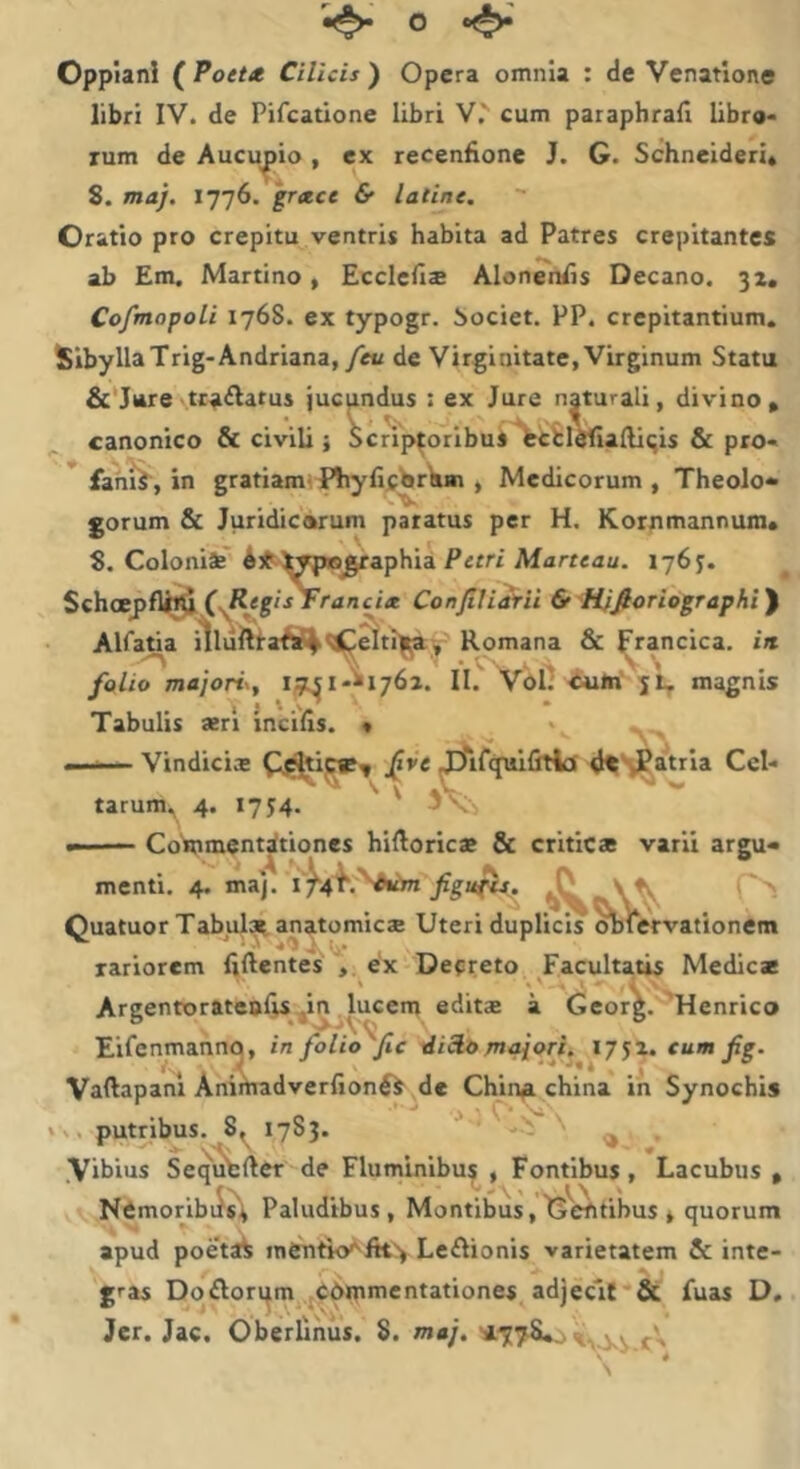 o
Oppiani ( Poetæ Cilicis ) Opera omnia : de Venatione
libri IV. de Piſcatione libri V. cum paraphraſi libro-
rum de Aucupio , ex recenſione J. G. Schneideri.
8. maj. 1776. græce & latine.
Oratio pro crepitu ventris habita ad Patres crepitantes
ab Em. Martino , Eccleſiæ Alonenſis Decano. 32.
Coſmopoli 1768. ex typogr. Societ. PP. crepitantium.
Sibylla Trig-Andriana, ſeu de Virginitate, Virginum Statu
& Jure tractatus jucundus : ex Jure naturali, divino,
canonico & civili ; Scriptoribus eccleſiaſticis & pro-
fanis, in gratiam Phyſicorum , Medicorum , Theolo-
gorum & Juridicorum paratus per H. Kornmannum.
8. Coloniæ ex typographia Petri Marteau. 1765.
Schœpflini ( Regis Franciæ Conſiliarii & Hiſtoriographi )
Alſatia illuſtrata, Celtica, Romana & Francica. in
folio majori, 1751-1762. II. Vol. cum 51. magnis
Tabulis æri inciſis.
—— Vindiciæ Celticæ, ſive Diſquiſitio de Patria Cel-
tarum. 4. 1754.
—— Commentationes hiſtoricæ & criticæ varii argu-
menti. 4. maj. 1741. cum figuris.
Quatuor Tabulæ anatomicæ Uteri duplicis obſervationem
rariorem ſiſtentes , ex Decreto Facultatis Medicæ
Argentoratenſis in lucem editæ à Georg. Henrico
Eiſenmanno, in folio ſic dicto majori. 1752. cum fig.
Vaſtapani Animadverſionés de China china in Synochis
putribus. 8. 1783.
Vibius Sequeſter de Fluminibus , Fontibus, Lacubus ,
Nemoribus, Paludibus, Montibus, Gentibus , quorum
apud poëtas mentio fit , Lectionis varietatem & inte-
gras Doctorum commentationes adjecit & ſuas D.
Jer. Jac. Oberlinus. 8. maj. 1778.